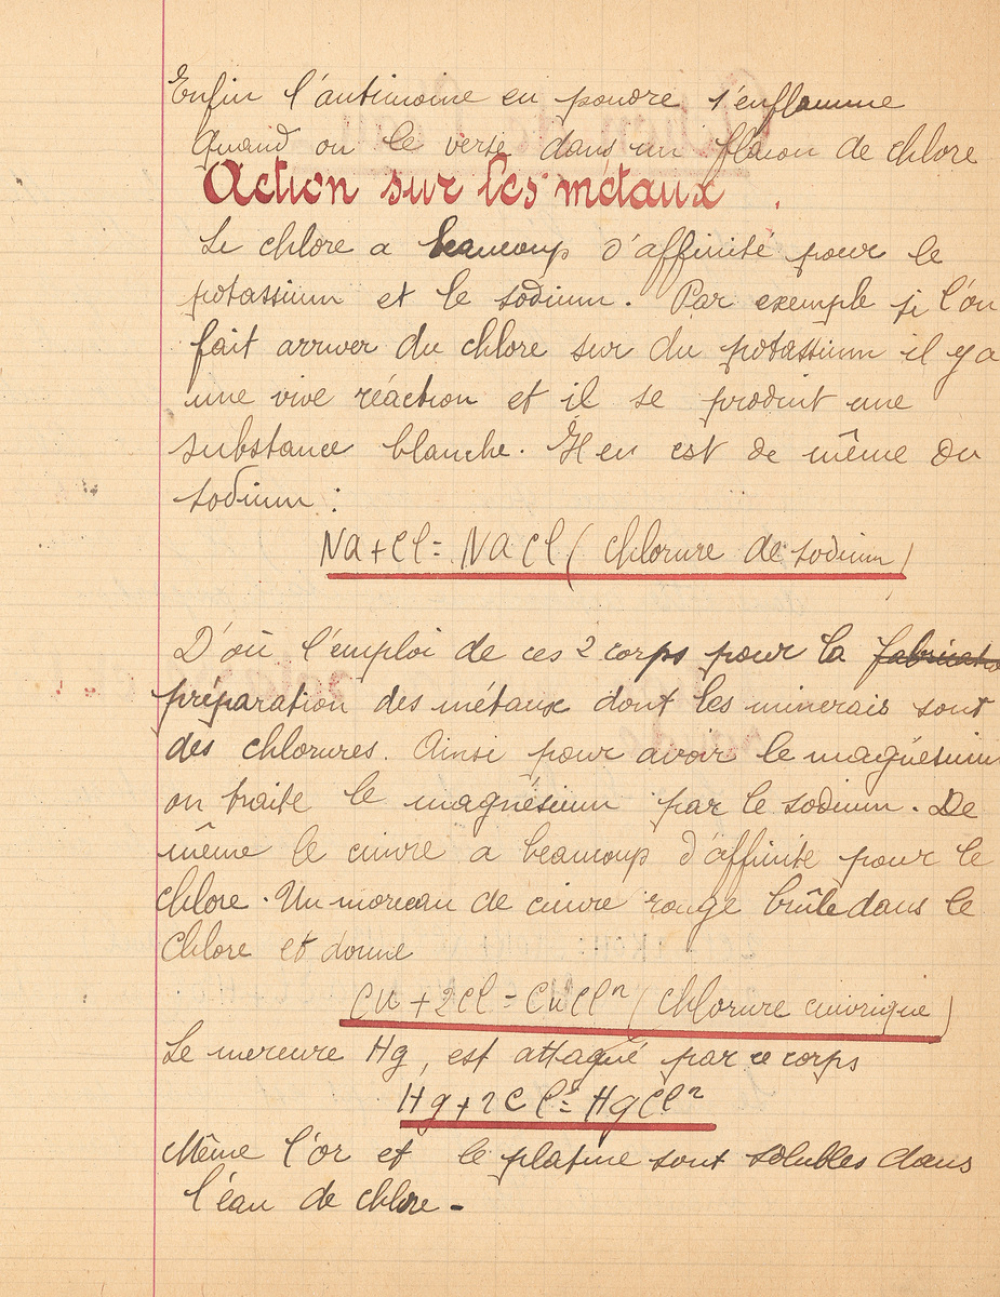 Enfin l'antimoine en poudre s'enflamme
quand on le verse dans un flacon de chlore
Action sur les métaux.
Le chlore a beaucoup d'affinité pour le
potassium et le sodium. Par exemple si l'on
fait arriver du chlore sur du potassium il y a
une vive réaction et il se produit une
substance blanche. Il en est de même du
sodium :
Na + Cl = NaCl ( chlorure de sodium )
D'où l'emploi de ces 2 corps pour la fabricatio
préparation des métaux dont les minerais sont
des chlorures. Ainsi pour avoir le magnésium
on traite le magnésium par le sodium. De
même le cuivre a beaucoup d'affinité pour le
chlore. Un morceau de cuivre rouge brûle dans le
chlore et donne
Cu + 2Cl = CuCl² ( chlorure cuivrique )
Le mercure Hg, est attaqué par ce corps
Hg + 2Cl = HgCl²
Même l'or et le platine sont solubles dans
l'eau de chlore -